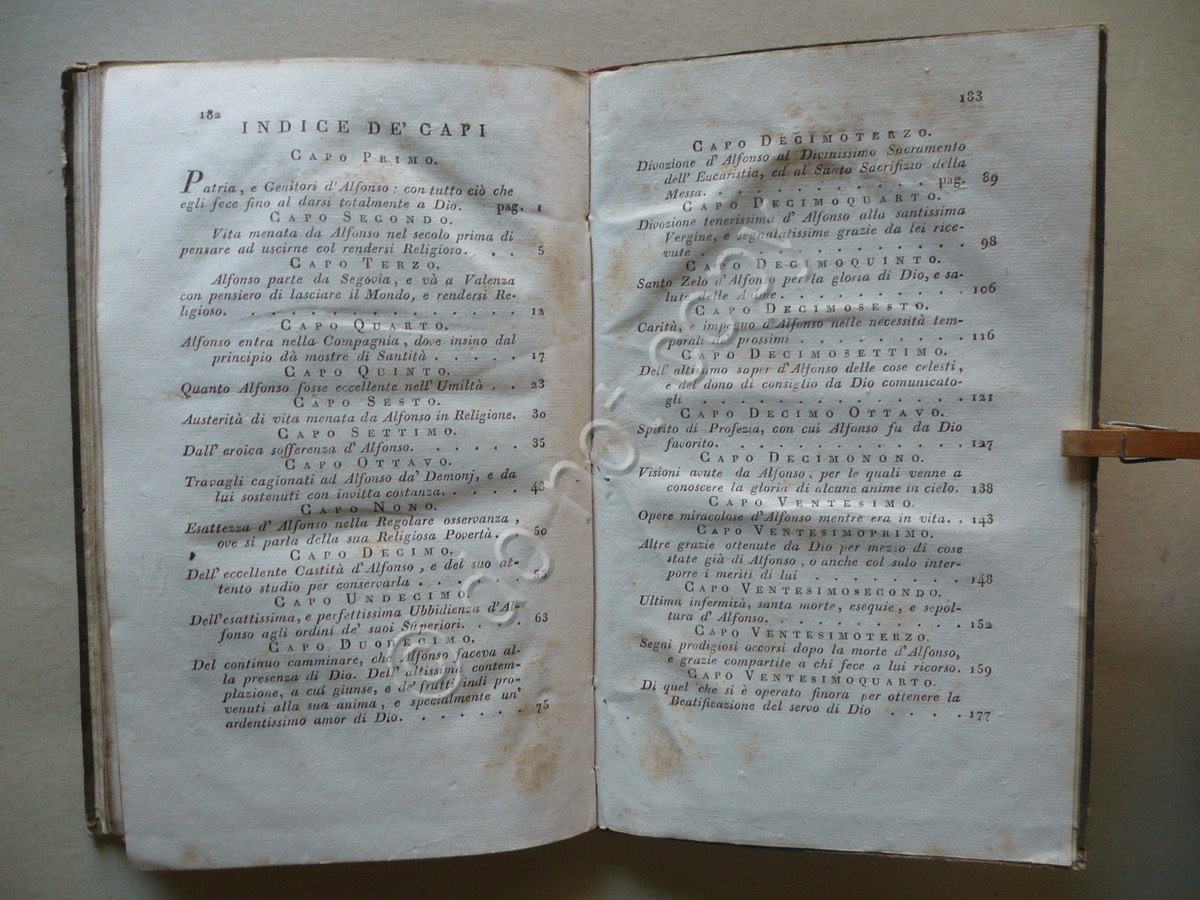 182
INDICE DE' CAPI
CAPO PRIMO.
Patria, e Genitori d'Alfonso: con tutto ciò che
egli fece fino al darsi totalmente a Dio. pag. 1
CAPO SECONDO.
Vita menata da Alfonso nel secolo prima di
pensare ad uscirne col rendersi Religioso. . . . 5
CAPO TERZO.
Alfonso parte da Segovia, e và a Valenza
con pensiero di lasciare il Mondo, e rendersi Re-
ligioso. . . . . . . . . . . . . . . 12
CAPO QUARTO.
Alfonso entra nella Compagnia, dove insino dal
principio dà mostre di Santità . . . . . . 17
CAPO QUINTO.
Quanto Alfonso fosse eccellente nell'Umiltà . . 23
CAPO SESTO.
Austerità di vita menata da Alfonso in Religione. 30
CAPO SETTIMO.
Dall'eroica sofferenza d'Alfonso. . . . . . 35
CAPO OTTAVO.
Travagli cagionati ad Alfonso da' Demonj, e da
lui sostenuti con invitta costanza. . . . . 43
CAPO NONO.
Esattezza d'Alfonso nella Regolare osservanza,
ove si parla della sua Religiosa Povertà. . . 50
CAPO DECIMO.
Dell'eccellente Castità d'Alfonso, e del suo at-
tento studio per conservarla . . . . . .
CAPO UNDECIMO.
Dell'esattissima, e perfettissima Ubbidienza d'Al-
fonso agli ordini de' suoi Superiori. . . . 63
CAPO DUODECIMO.
Del continuo camminare, che Alfonso faceva al-
la presenza di Dio. Dell'altissima contem-
plazione, a cui giunse, e de' frutti indi pro-
venuti alla sua anima, e specialmente un'
ardentissimo amor di Dio. . . . . . . 75
183
CAPO DECIMOTERZO.
Divozione d'Alfonso al Divinissimo Sacramento
dell'Eucaristia, ed al Santo Sacrifizio della
Messa. . . . . . . . . . . . pag. 89
CAPO DECIMOQUARTO.
Divozione tenerissima d'Alfonso alla santissima
Vergine, e segnalatissime grazie da lei rice-
vute . . . . . . . . . . . . . 98
CAPO DECIMOQUINTO.
Santo Zelo d'Alfonso per la gloria di Dio, e sa-
lute delle Anime. . . . . . . . . . 106
CAPO DECIMOSESTO.
Carità, e impegno d'Alfonso nelle necessità tem-
porali de' prossimi . . . . . . . . . 116
CAPO DECIMOSETTIMO.
Dell'altissimo saper d'Alfonso delle cose celesti,
e del dono di consiglio da Dio comunicato-
gli . . . . . . . . . . . . . 121
CAPO DECIMO OTTAVO.
Spirito di Profezia, con cui Alfonso fu da Dio
favorito. . . . . . . . . . . . 127
CAPO DECIMONONO.
Visioni avute da Alfonso, per le quali venne a
conoscere la gloria di alcune anime in cielo. 138
CAPO VENTESIMO.
Opere miracolose d'Alfonso mentre era in vita. . 143
CAPO VENTESIMOPRIMO.
Altre grazie ottenute da Dio per mezzo di cose
state già di Alfonso, o anche col solo inter-
porre i meriti di lui . . . . . . . . 148
CAPO VENTESIMOSECONDO.
Ultima infermità, santa morte, esequie, e sepol-
tura d'Alfonso. . . . . . . . . . . 152
CAPO VENTESIMOTERZO.
Segni prodigiosi occorsi dopo la morte d'Alfonso,
e grazie compartite a chi fece a lui ricorso. 159
CAPO VENTESIMOQUARTO.
Di quel che si è operato finora per ottenere la
Beatificazione del servo di Dio . . . . 177